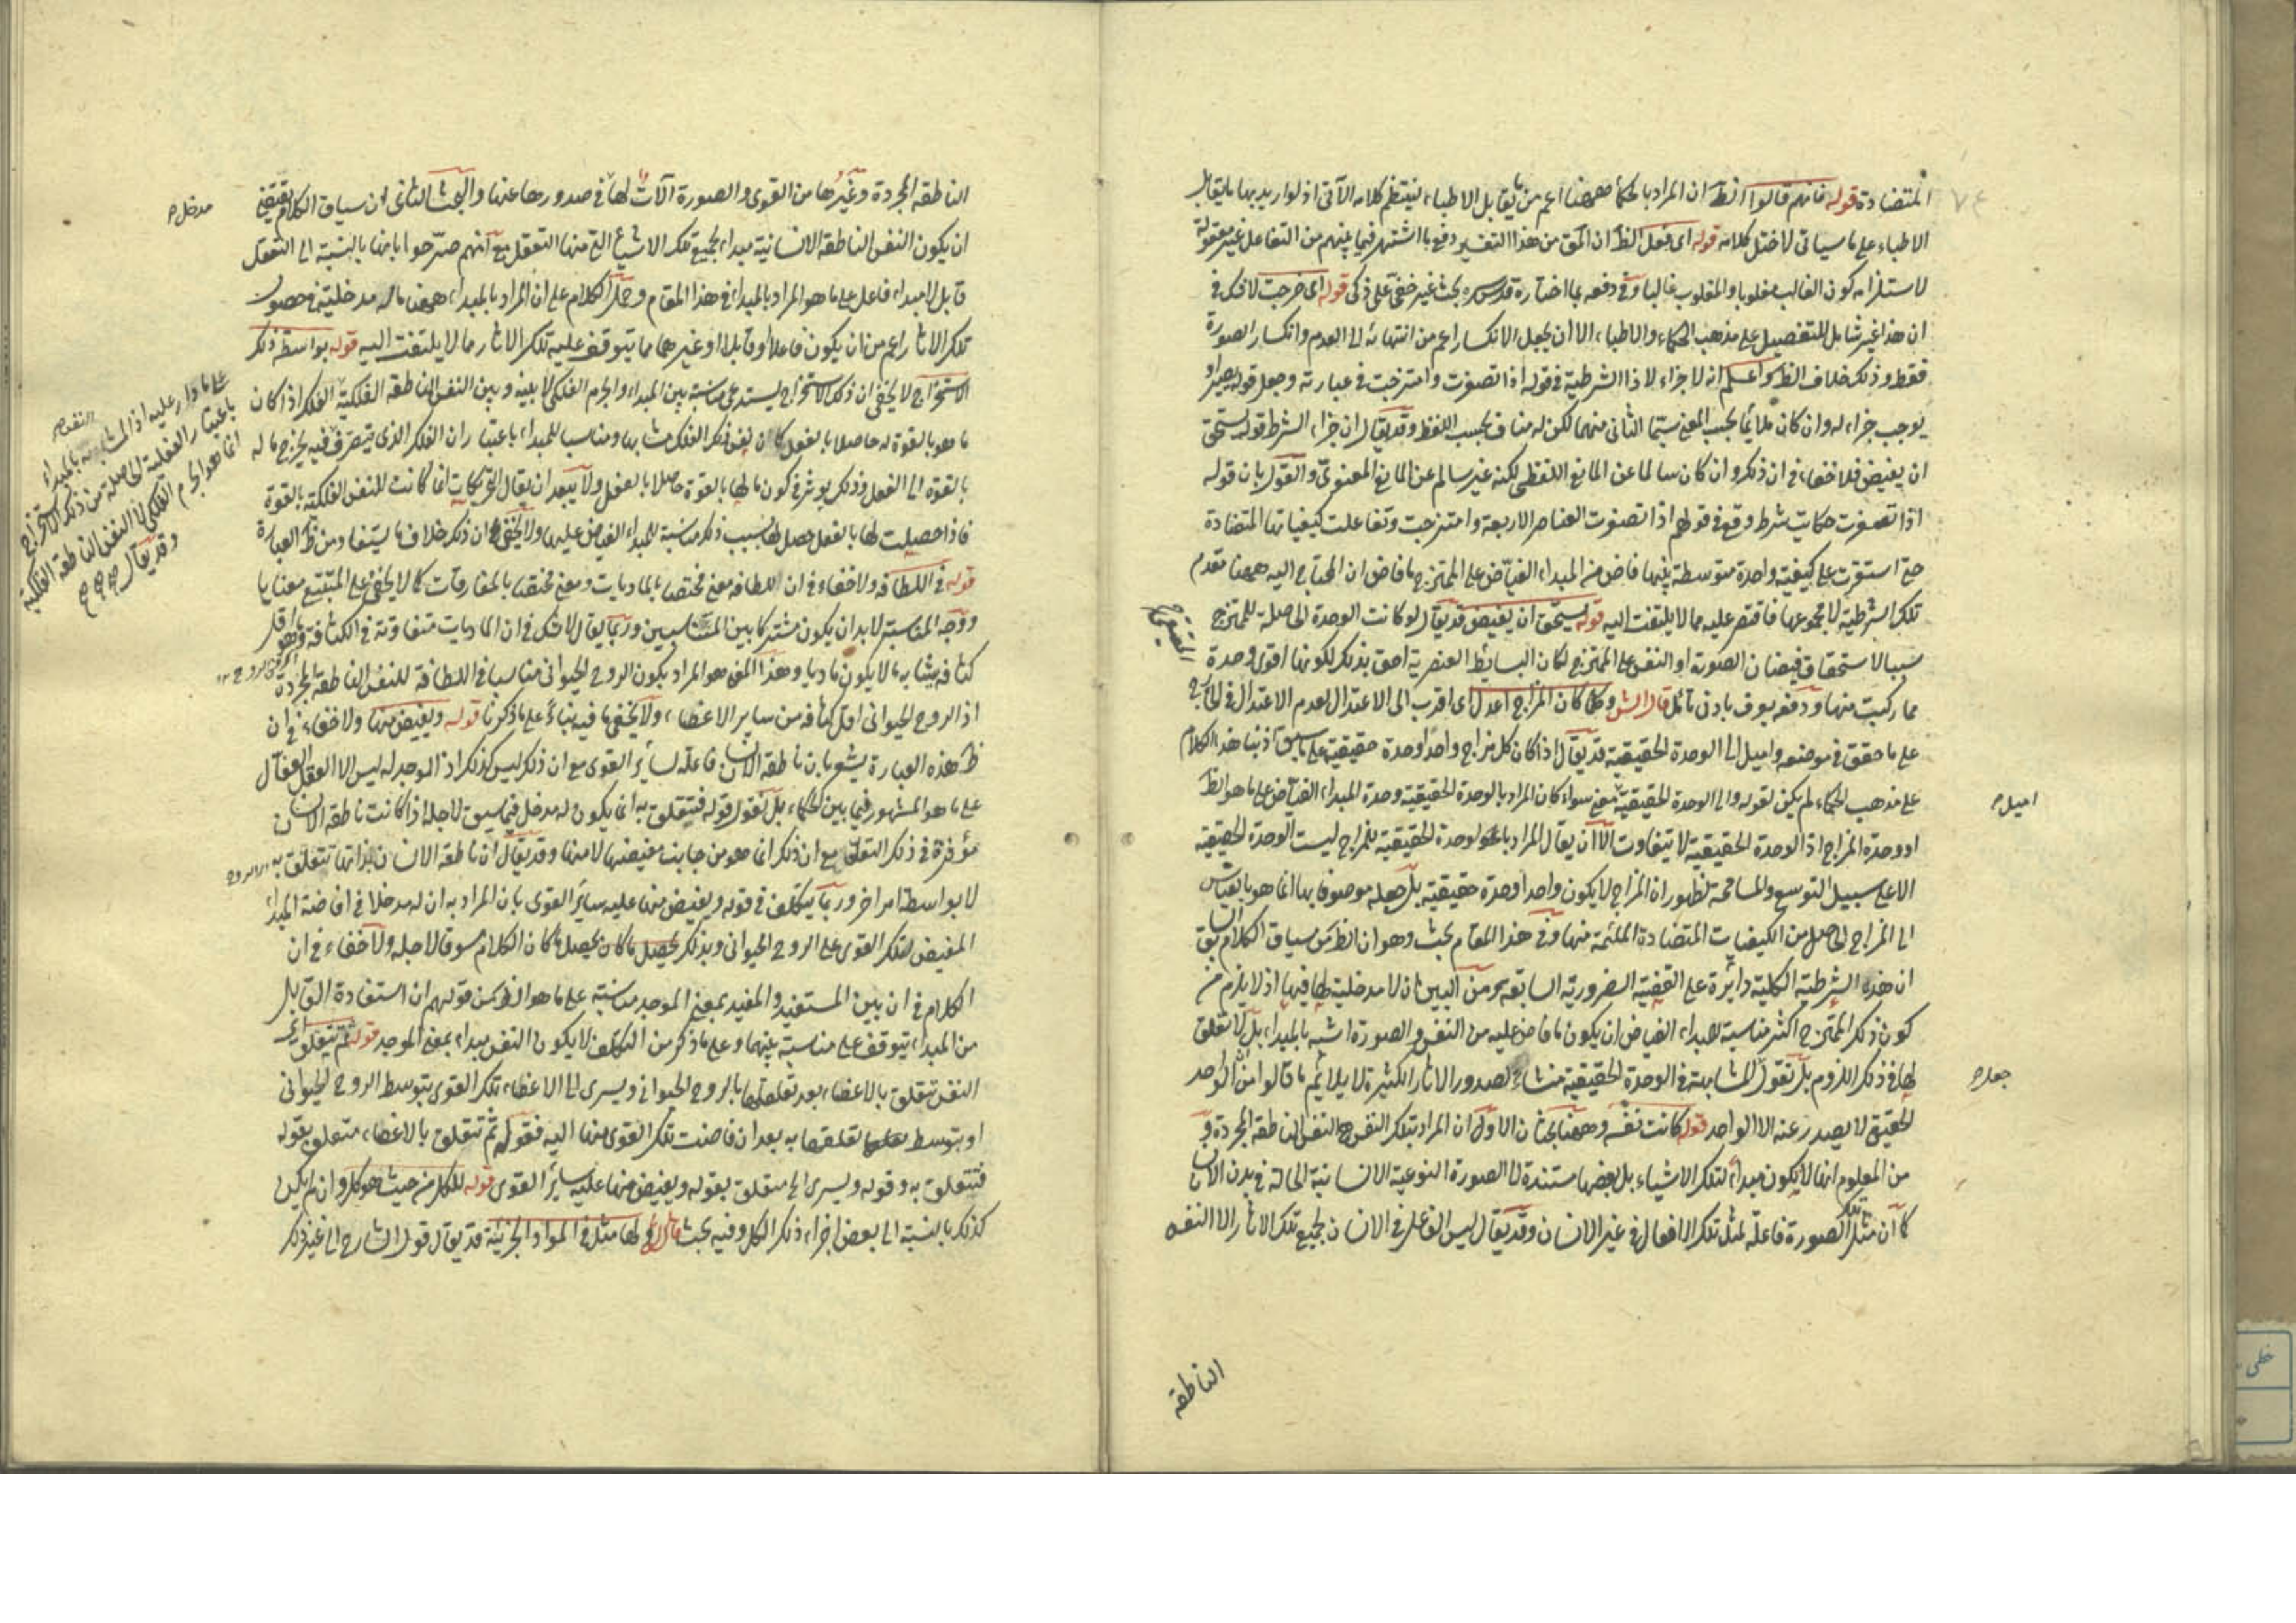 ٧٤
المتضادة قوله فانهم قالوا الظ ان المراد بالحكماء ههنا اعم من ما يقابل الاطباء لينتظم كلامه الآتى اذ لو اريد بها ما يقابل
الاطباء على ما سياتى لاختل كلامه قوله اى فعل الظ ان المق من هذا التفسير دفع ما اشتهر فيما بينهم من التفاعل غير معقولة
لاستلزامه كون الغالب مغلوبا والمغلوب غالبا وفى دفعه بما اختاره قدس سره بحث غير خفى على ذكى قوله اى خرجت لا شك فى
ان هذا غير شامل للتفصيل على مذهب الحكماء والاطباء الا ان يجعل الانكسار اعم من انتهائه الى العدم وانكسار الصورة
فقط وذلك خلاف الظ واعلم انه لا جزاء لاذا الشرطية فى قوله اذا تصغرت وامتزجت فى عبارته وجعل قوله
يوجب جزاء له وان كان ملائما بحسب المعنى سيما الثانى منهما لكن له مناف بحسب اللفظ وقد يقال ان جزاء الشرط قوله يستحق
ان يفيض فلا خفاء فى ان ذلك وان كان سالما عن المانع اللفظى لكنه غير سالم عن المانع المعنوى والقول بان قوله
اذا تصغرت حكاية شرط وقع فى قولهم اذا تصغرت العناصر الاربعة وامتزجت وتفاعلت كيفياتها المتضادة
حتى استقرت على كيفية واحدة متوسطة بينها فاض من المبداء الفياض على الممتزج ما فاض ان المحتاج اليه ههنا مقدم
تلك الشرطية لا مجموعها فاقتصر عليه مما لا يلتفت اليه قوله يستحق ان يفيض قد يقال لو كانت الوحدة الحاصلة للممتزج
سببا لاستحقاق فيضان الصورة او النفس على الممتزج لكان البسائط العنصرية احق بذلك لكونها اقوى وحدة
مما ركبت منها ودفعه يعرف بادنى تامل قال الش وكلما كان المزاج اعدل اى اقرب الى الاعتدال لعدم الاعتدال فى الخارج
على ما حقق فى موضعه واميل الى الوحدة الحقيقية قد يقال اذا كان كل مزاج واحدا وحدة حقيقية على ما سبق اذ بنا هذا الكلام
على مذهب الحكماء لم يكن لقوله والى الوحدة الحقيقية معنى سواء كان المراد بالوحدة الحقيقية وحدة المبداء الفياض على ما هو الظ
او وحدة المزاج اذ الوحدة الحقيقية لا يتفاوت الا ان يقال المراد بالوحدة الحقيقية للمزاج ليست الوحدة الحقيقية
الا على سبيل التوسع والمسامحة لظهور ان المزاج لا يكون واحدا وحدة حقيقية بل جعله موصوفا بها انما هو بالقياس
الى المزاج الحاصل من الكيفيات المتضادة الملتئمة منها وفى هذا المقام بحث وهو ان الظ من سياق الكلام
ان هذه الشرطية الكلية دائرة على القضية الضرورية السابقة ومن البين ان لا مدخلية لها فيها اذ لا يلزم من
كون ذلك الممتزج اكثر مناسبة للمبداء الفياض ان يكون ما فاض عليه من النفس والصورة اشبه بالمبداء بل لا تعلق
لها فى ذلك اللزوم بل نقول المشابهة فى الوحدة الحقيقية منشاء لصدور الاثار الكثيرة لا يلائم ما قالوا من ان الواحد
الحقيقى لا يصدر عنه الا الواحد قوله كانت نفسه وههنا بحثان الاول ان المراد بتلك النفس هى النفس الناطقة المجردة و
من المعلوم انها لا يكون مبداء لتلك الاشياء بل بعضها مستندة الى الصورة النوعية الانسانية الحالة فى بدن الانسان
كما ان مثل تلك الصورة فاعلة لمثل تلك الافعال فى غير الانسان وقد يقال ليس الفاعل فى الانسان لجميع تلك الاثار الا النفس
اميل م
جعله م
الناطقة
الناطقة المجردة وغيرها من القوى والصورة الآلات لها فى صدورها عنها والبحث الثانى ان سياق الكلام يقتضى
ان يكون النفس الناطقة الانسانية مبداء لجميع تلك الاشياء التى منها التعقل مع انهم صرحوا بانها بالنسبة الى التعقل
قابل لا مبداء فاعل على ما هو المراد بالمبداء فى هذا المقام وحمل الكلام على ان المراد بالمبداء ههنا ما له مدخلية فى حصول
تلك الاثار اعم من ان يكون فاعلا او قابلا او غيرهما مما يتوقف عليه تلك الاثار مما لا يلتفت اليه قوله بواسطة ذلك
الاستخراج لا يخفى ان ذلك الاستخراج يستدعى مناسبة بين المبداء والجرم الفلكى لا بينه وبين النفس الناطقة الفلكية الفلك اذا كان
ما هو بالقوة له حاصلا بالفعل كان نفس ذلك الفلك مشابها ومناسبا للمبداء باعتبار ان الفلك الذى يتصرف فيه يخرج ما له
بالقوة الى الفعل وذلك يوثر فى كون ما لها بالقوة حاصلا بالفعل ولا يبعد ان يقال الحركات انما كانت للنفس الفلكية بالقوة
فاذا حصلت لها بالفعل حصل لها بسبب ذلك مناسبة للمبداء الفياض عليها ولا يخفى ان ذلك خلاف ما يستفاد من ظ العبارة
قوله فى اللطافة ولا خفاء فى ان اللطافة معنى مختصا بالماديات ومعنى مختصا بالمفارقات كما لا يخفى على المتتبع معنا يا
ووجه المناسبة لا بد ان يكون مشتركا بين المتناسبين وربما يقال لا شك فى ان الماديات متفاوتة فى الكثافة وما هو اقل
كثافة يشابه ما لا يكون ماديا وهذا المعنى هو المراد بكون الروح الحيوانى مناسبا فى اللطافة للنفس الناطقة المجردة
اذ الروح الحيوانى اقل كثافة من ساير الاعضاء ولا يخفى ما فيه بناء على ما ذكرنا قوله ويفيض منها ولا خفاء فى ان
ظ هذه العبارة يشعر بان ناطقة الانسان فاعلة لسائر القوى مع ان ذلك ليس كذلك اذ الموجد له ليس الا العقل الفعال
على ما هو المشهور فيما بين الحكماء بل نقول قوله فيتعلق به انما يكون له مدخل فيما سيق لاجله اذا كانت ناطقة الانسان
مؤثرة فى ذلك التعلق مع ان ذلك انما هو من جانب مفيضها لا منها وقد يقال ان ناطقة الانسان بذاتها تتعلق به
لا بواسطة امر اخر وربما يتكلف فى قوله ويفيض منها عليه سائر القوى بان المراد به ان له مدخلا فى افاضة المبداء
المفيض لتلك القوى على الروح الحيوانى وبذلك يحصل ما كان الكلام مسوقا لاجله ولا خفاء فى ان
الكلام فى ان بين المستفيد والمفيد بمعنى الموجد مناسبة على ما هو الظ من قولهم ان استفادة القابل
من المبداء يتوقف على مناسبة بينهما وعلى ما ذكر من التكلف لا يكون النفس مبداء بمعنى الموجد قوله ثم تتعلق اى
النفس تتعلق بالاعضاء بعد تعلقها بالروح الحيوانى ويسرى الى الاعضاء تلك القوى بتوسط الروح الحيوانى
او بتوسط تعلقها به بعد ان فاضت تلك القوى منها اليه فقوله ثم تتعلق بالاعضاء متعلق بقوله
فتتعلق به وقوله ويسرى الى متعلق بقوله ويفيض منها عليه سائر القوى قوله للكل من حيث هو كل وان لم يكن
كذلك بالنسبة الى بعض اجزاء ذلك الكل وفيه بحث قال الش لها مثل فى المواد الجزئية قد يقال قول الشارح الى غير ذلك
مدخل م
على ما دار عليه اذ المشابه بالمبداء
باعتبار الفعلية الحاصلة من ذلك الاستخراج
انما هو الجرم الفلكى لا النفس الناطقة الفلكية
وقد يقال